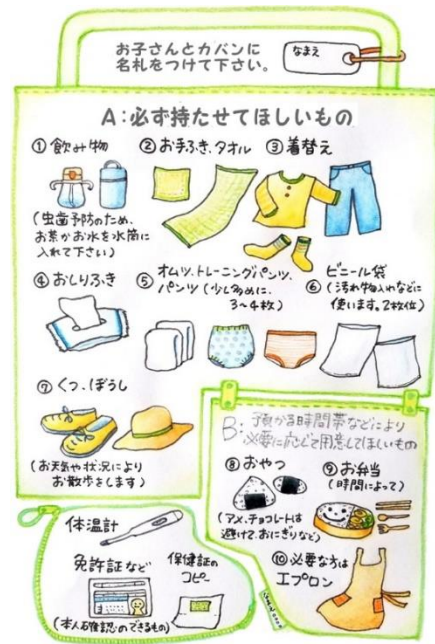 お子さんとカバンに
名札をつけて下さい。
なまえ
A:必ず持たせてほしいもの
① 飲み物
(虫歯予防のため、
お茶かお水を水筒に
入れて下さい)
② お手ふき、タオル
③ 着替え
④ おしりふき
⑤ オムツ、トレーニングパンツ、
パンツ (少し多めに、
3〜4枚)
⑥ ビニール袋
(汚れ物入れなどに
使います。2枚位)
⑦ くつ、ぼうし
(お天気や状況により
お散歩をします)
B: 預かる時間帯などにより
必要に応じて用意してほしいもの
⑧ おやつ
(アメ、チョコレートは
避けて、おにぎりなど)
⑨ お弁当
(時間によって)
⑩ 必要な方は
エプロン
体温計
免許証など
(本人確認のできるもの)
保健証の
コピー